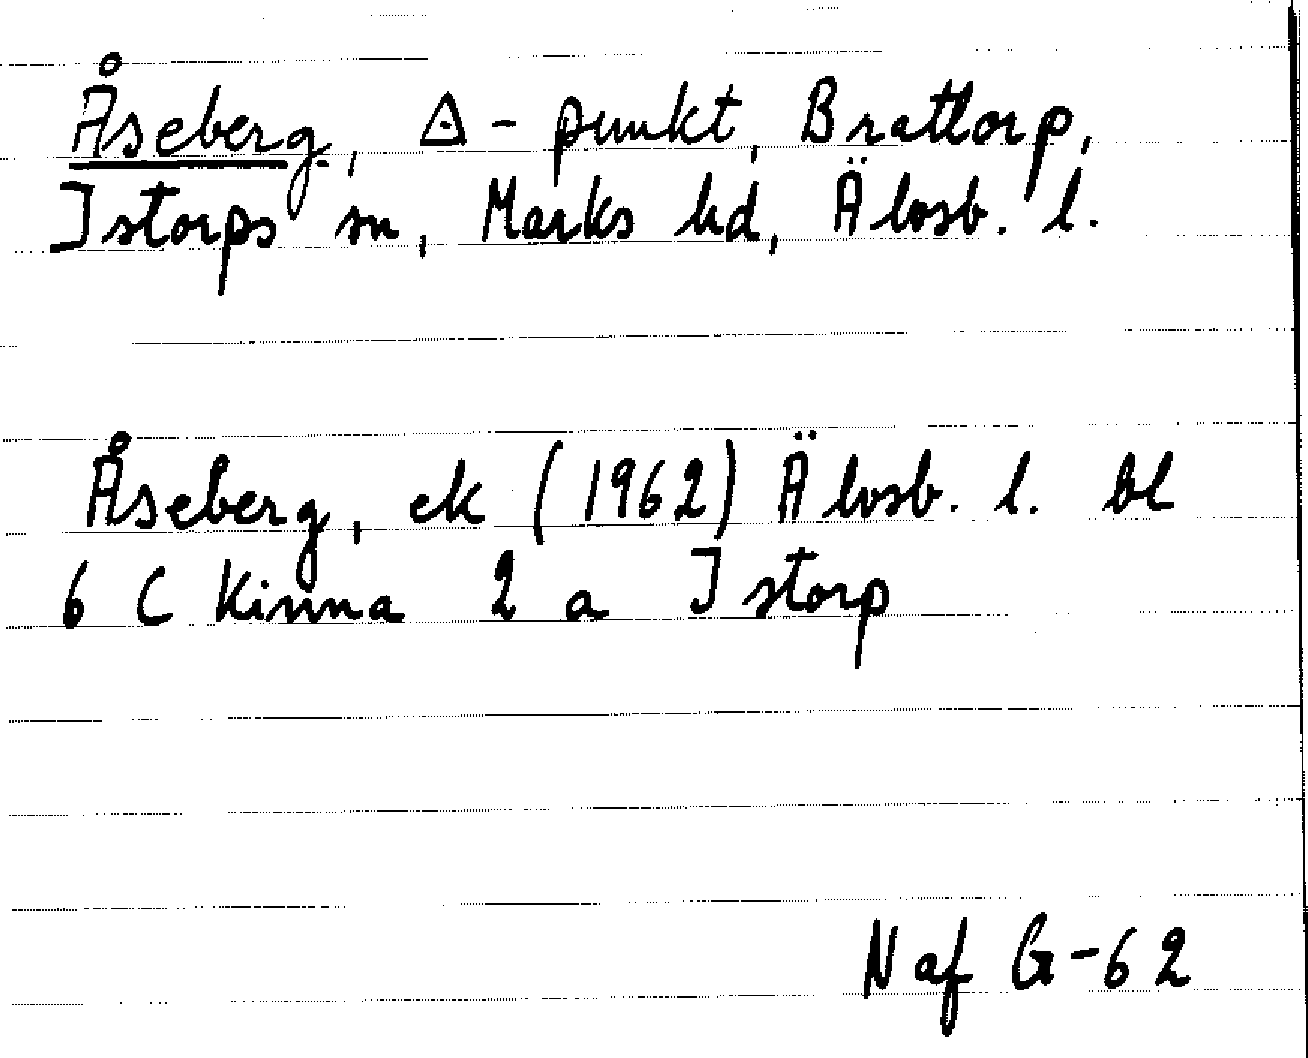 Åseberg, △-punkt, Brattorp,
Istorps sn, Marks hd, Älvsb. l.
Åseberg, ek (1962) Älvsb. l. bl
6 C Kinna 2 a Istorp
N af G-62